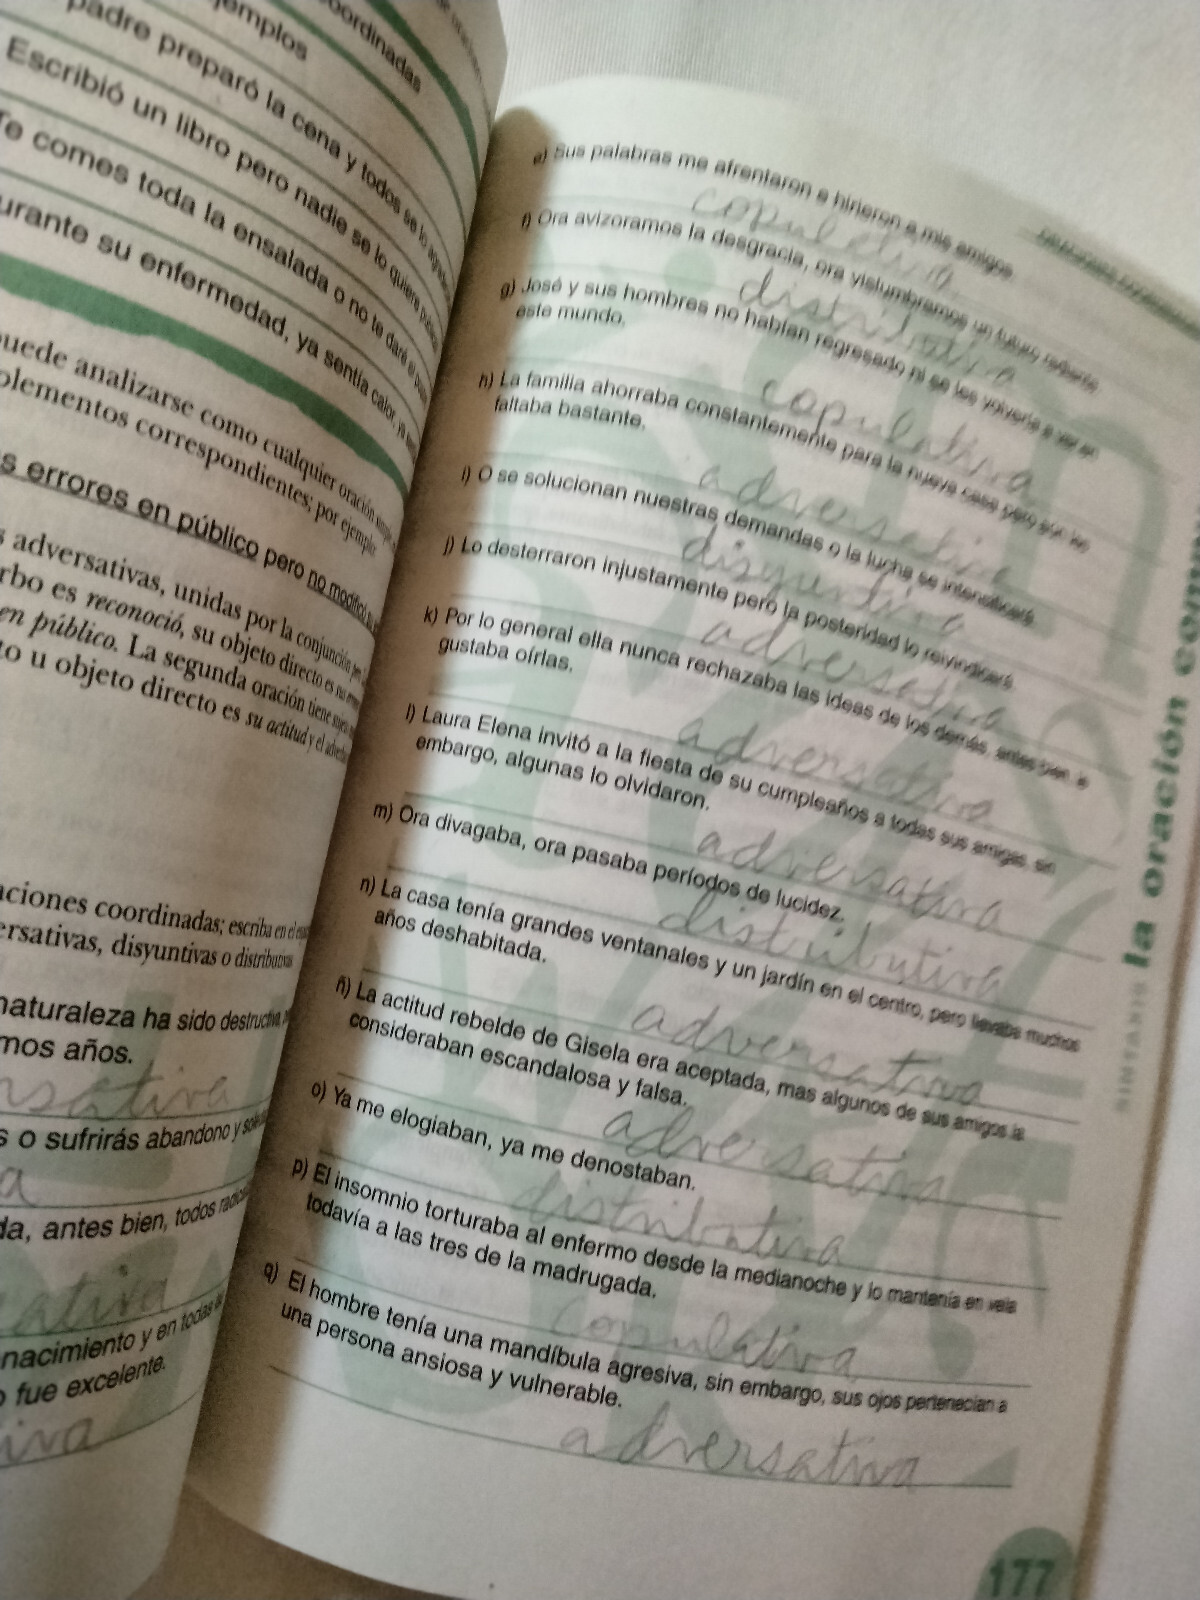 coordinadas
ejemplos
padre preparó la cena y todos se lo
Escribió un libro pero nadie se lo quiere
Te comes toda la ensalada o no te daré el
urante su enfermedad, ya sentía calor, ya
puede analizarse como cualquier oración
plementos correspondientes; por ejemplo:
s errores en público pero no modificó
s adversativas, unidas por la conjunción
rbo es reconoció, su objeto directo es
en público. La segunda oración tiene
to u objeto directo es su actitud y el
aciones coordinadas; escriba en el
ersativas, disyuntivas o distributivas
naturaleza ha sido destructiva
mos años.
rsativa
s o sufrirás abandono y
a
da, antes bien, todos
ativa
nacimiento y en todas
o fue excelente.
iva
e) Sus palabras me afrentaron e hirieron a mis amigos.
copulativa
f) Ora avizoramos la desgracia, ora vislumbramos un futuro radiante.
distributiva
g) José y sus hombres no habían regresado ni se les volvería a ver en
este mundo.
copulativa
h) La familia ahorraba constantemente para la nueva casa pero aún les
faltaba bastante.
adversativa
i) O se solucionan nuestras demandas o la lucha se intensificará.
disyuntiva
j) Lo desterraron injustamente pero la posteridad lo reivindicará.
adversativa
k) Por lo general ella nunca rechazaba las ideas de los demás, antes bien, le
gustaba oírlas.
adversativa
l) Laura Elena invitó a la fiesta de su cumpleaños a todas sus amigas, sin
embargo, algunas lo olvidaron.
adversativa
m) Ora divagaba, ora pasaba períodos de lucidez.
distributiva
n) La casa tenía grandes ventanales y un jardín en el centro, pero llevaba muchos
años deshabitada.
adversativa
ñ) La actitud rebelde de Gisela era aceptada, mas algunos de sus amigos la
consideraban escandalosa y falsa.
adversativa
o) Ya me elogiaban, ya me denostaban.
distributiva
p) El insomnio torturaba al enfermo desde la medianoche y lo mantenía en vela
todavía a las tres de la madrugada.
copulativa
q) El hombre tenía una mandíbula agresiva, sin embargo, sus ojos pertenecían a
una persona ansiosa y vulnerable.
adversativa
SINTAXIS la oración
177